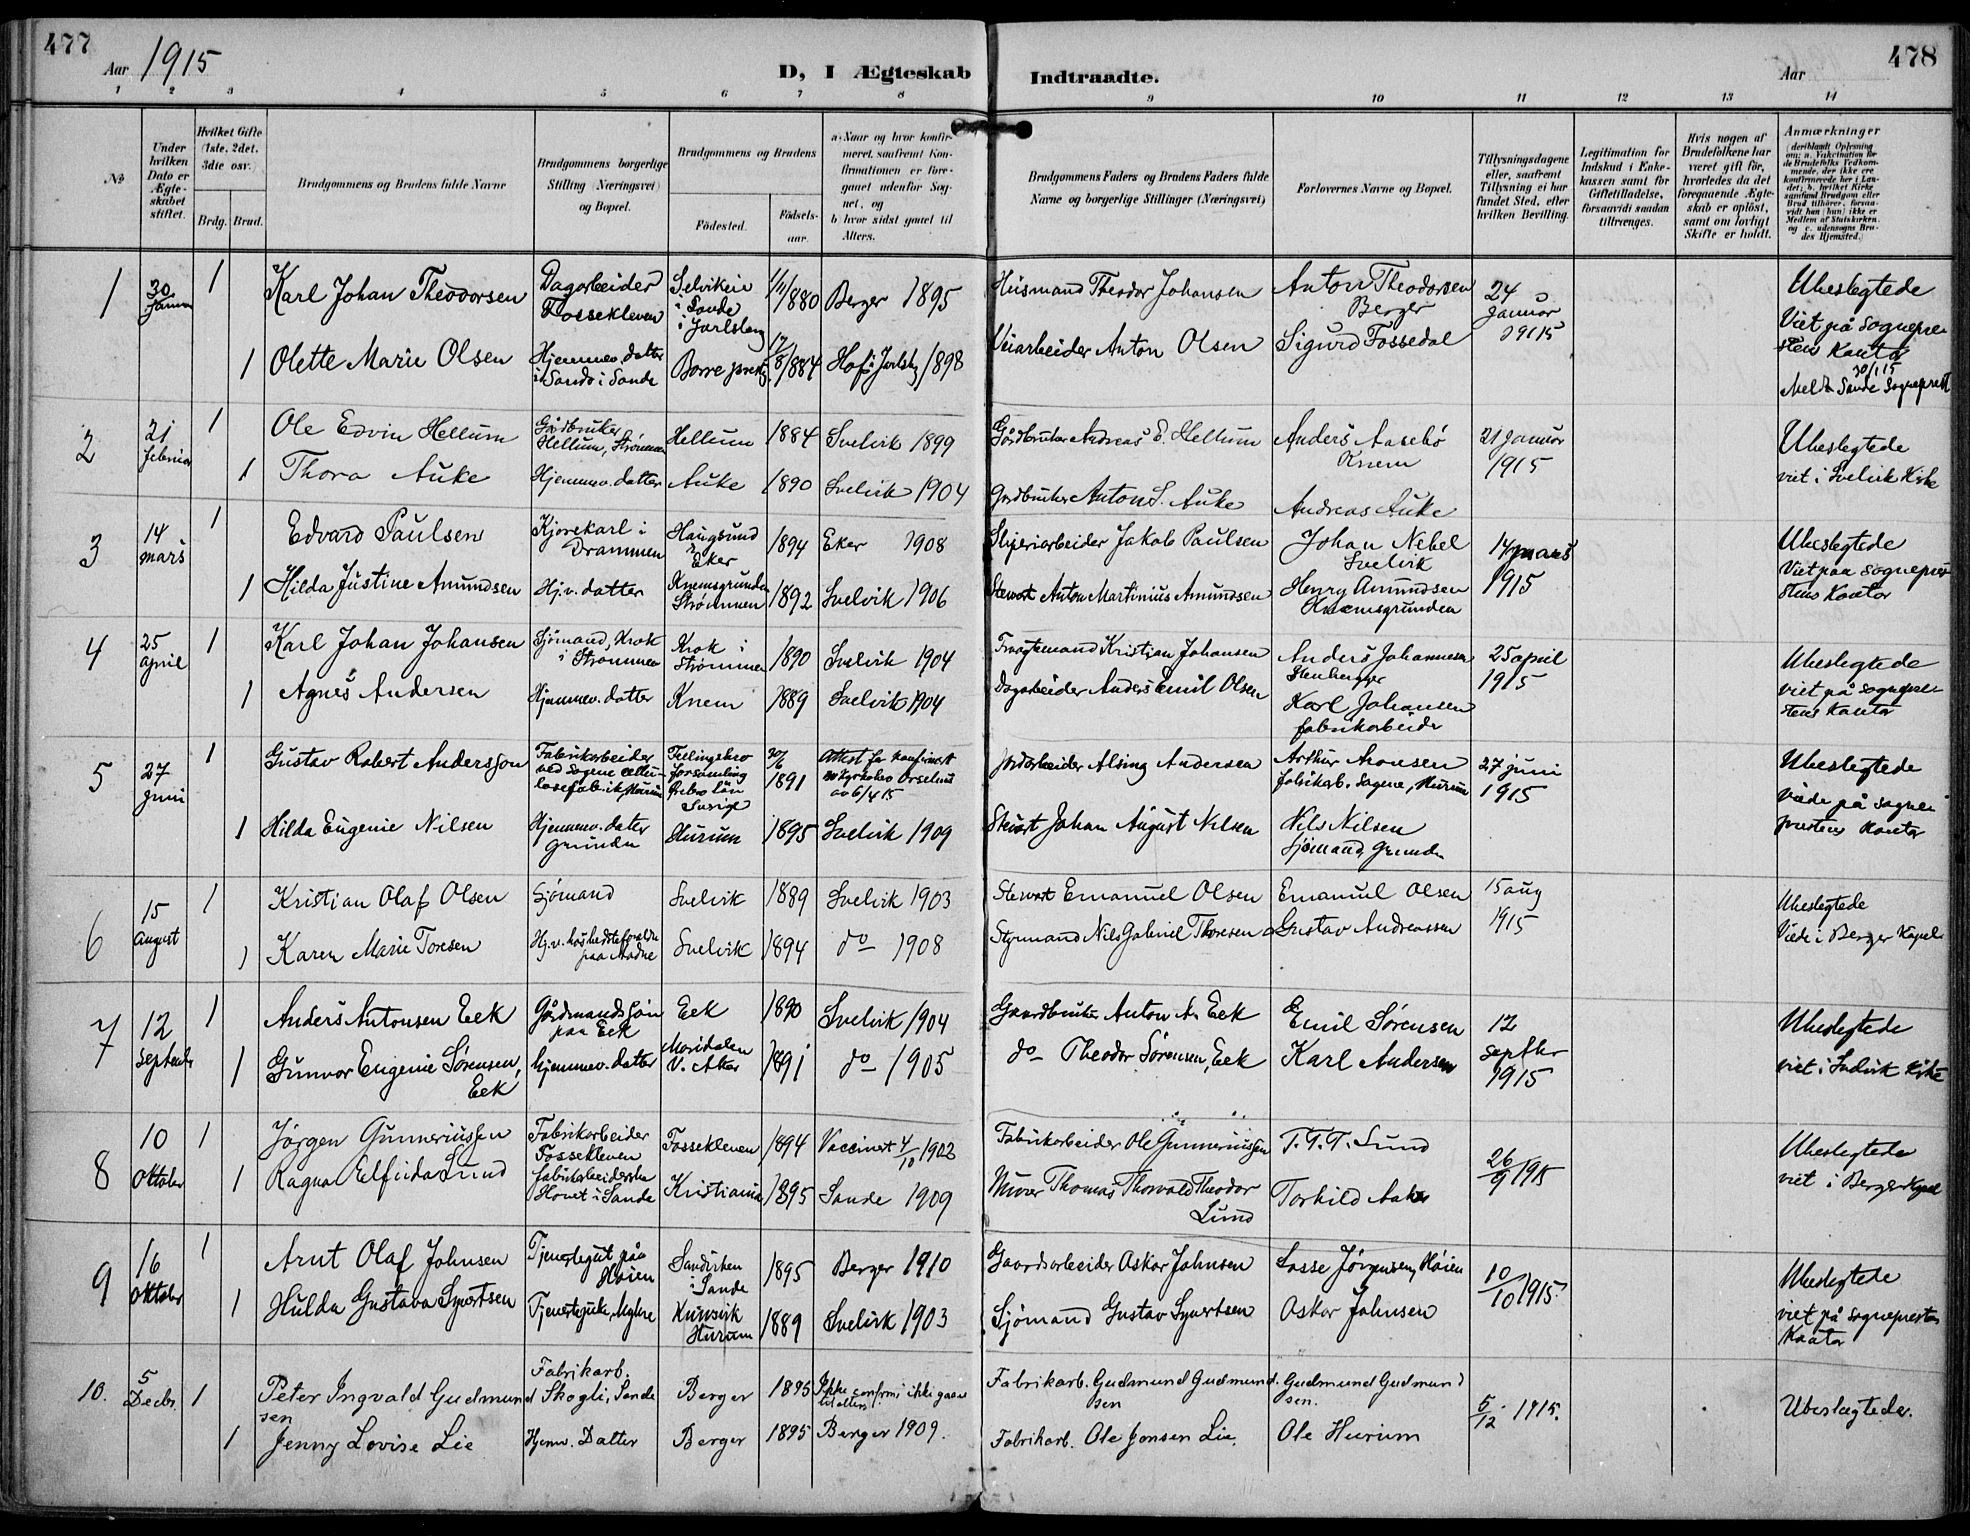 477
Aar 1915
D, I Ægteskab Indtraadte.
Aar
478
1 2 3 4 5 6 7 8 9 10 11 12 13 14
No
Under hvilken Dato er Ægteskabet stiftet.
Hvilket Gifte (1ste, 2det, 3die osv.)
Brdg. Brud.
Brudgommens og Brudens fulde Navne
Brudgommens borgerlige Stilling (Næringsvei) og Bopæl.
Brudgommens og Brudens
Fødested.
Fødselsaar.
a. Naar og hvor konfirmeret, saafremt Konfirmationen er foregaaet udenfor Sognet, og
b. hvor sidst gaaet til Alters.
Brudgommens Faders og Brudens Faders fulde Navne og borgerlige Stillinger (Næringsvei)
Forlovernes Navne og Bopæl.
Tillysningsdagene eller, saafremt Tillysning ei har fundet Sted, efter hvilken Bevilling.
Legitimation for Indskud i Enkekassen samt for Giftetilladelse, forsaavidt saadan tiltrænges.
Hvis nogen af Brudefolkene har været gift før, hvorledes da det foregaaende Ægteskab er opløst, samt om lovligt Skifte er holdt.
Anmærkninger
(deriblandt Oplysning om: a. Vakcination for de Brudefolks Vedkommende, der ikke ere konfirmerede her i Landet; b. hvilket Kirkesamfund Brudgom eller Brud tilhører, forsaavidt han (hun) ikke er Medlem af Statskirken, og c. udensogns Brudes Hjemsted.)
1 30 Januar 1 Karl Johan Theodorsen Dagarbeider Fossekleven Selviken i Sande i Jarlsberg 1/11/880 Berger 1895 Husmand Theodor Johansen Anton Theodorsen Berger 24 Januar 1915 Ubeslegtede Viet på Sogneprestens Kontor 30/1 15
1 Olette Marie Olsen Hjemmev. datter i Sande i Sande Borre 17/8/884 Hof i Jarlsbg 1898 Veiarbeider Anton Olsen Sigurd Fossedal
2 21 februar 1 Ole Edvin Hellum Gårdbruker Hellum, Strømmen Hellum 1884 Svelvik 1899 Gårdbruker Andreas E. Hellum Anders Aasebö Knem 21 Januar 1915 Ubeslegtede viet i Svelvik Kirke
1 Thora Auke Hjemmev. datter Auke 1890 Svelvik 1904 Gårdbruker Anton S. Auke Andreas Auke
3 14 mars 1 Edvard Paulsen Kjørekarl i Drammen Haugsund Eker 1894 Eker 1908 Sliperiarbeider Jakob Paulsen Johan Nebel Svelvik 14 mars 1915 Ubeslegtede Viet paa Sogneprestens Kontor
1 Hilda Justine Amundsen Hj.v. datter Knemsgrunden Strømmen 1892 Svelvik 1906 Stewart Anton Martinius Amundsen Henry Amundsen Knemsgrunden
4 25 april 1 Karl Johan Johansen Sjömand, Krok i Strømmen Krok i Strømmen 1890 Svelvik 1904 Kristian Johansen Anders Johannesen 25 april 1915 Ubeslegtede viet på Sogneprestens Kontor
1 Agnes Andersen Hjemmev. datter Knem 1889 Svelvik 1904 Dagarbeider Anders Emil Olsen Karl Johansen fabrikarbeider
5 27 juni 1 Gustav Robert Andersson Fabrikarbeider ved Sagene cellulosefabrik, Hurum forsamling Örebro län Sverige 30/6 1891 Attest for konfirmert av 6/4 15 Jordarbeider Andersen Arthur Aronsen fabrikarb. Sagene, Hurum 27 juni 1915 Ubeslegtede Viede på Sogneprestens Kontor
1 Hilda Eugenie Nilsen Hjemmev. dater Grunden Hurum 1895 Svelvik 1909 Stewart Johan August Nilsen Nils Nilsen Sjømand, Grunden
6 15 August 1 Kristian Olaf Olsen Sjömand Svelvik 1889 Svelvik 1903 Stewart Emanuel Olsen Emanuel Olsen 15 aug 1915 Ubeslegtede Viede i Berger Kapel
1 Karen Marie Toresen Svelvik 1894 do 1908 Styrmand Nils Gabriel Thoresen Gustav Andreassen
7 12 September 1 Anders Antonsen Eek Gårdmandssön paa Eek Eek 1890 Svelvik 1904 Gaardbruker Anton A. Eek Emil Sørensen 12 septbr 1915 Ubeslegtede viet i Svelvik Kirke
1 Gunvor Eugenie Sörensen, Eek Hjemmev. datter Maridalen V. Aker 1891 do 1905 do Theodor Sørensen, Eek Karl Andersen
8 10 Oktober 1 Jörgen Gunneriussen Fabrikarbeider Fossekleven Fossekleven 1894 Vaccinert 4/10 1902 Fabrikarbeider Ole Gunneriussen T. T. T. Lund 26/9 1915 Ubeslegtede viet i Berger Kapel
1 Ragna Elfrida Lund fabrikarbeiderske Hovet i Sande Kristiania 1895 Sande 1909 Murer Thomas Thorvald Theodor Lund Torkild Aakes
9 16 Oktober 1 Arnt Olaf Johnsen Tjenestegut på Høien i Sande 1895 Berger 1910 Gaardsarbeider Oskar Johnsen Lasse Jörgensen, Høien 10/10 1915. Ubeslegtede viet på Sogneprestens Kontor
1 Hulda Gustava Syvertsen Hurum 1889 Svelvik 1903 Sjömand Gustav Syvertsen Oskar Johnsen
10. 5 Decbr. 1 Peter Ingvald Gudmundsen Fabrikarb. Skogli, Sande Berger 1895 Ikke confirm. ikke gaaet til alters. Fabrikarb. Gudmund Gudmundsen Gudmund Gudmundsen. 5/12. 1915. Ubeslægtede.
1 Jenny Lovise Lie Hjemv. Datter Berger 1895 Berger 1909. Fabrikarb. Ole Jonsen Lie. Ole Hurum